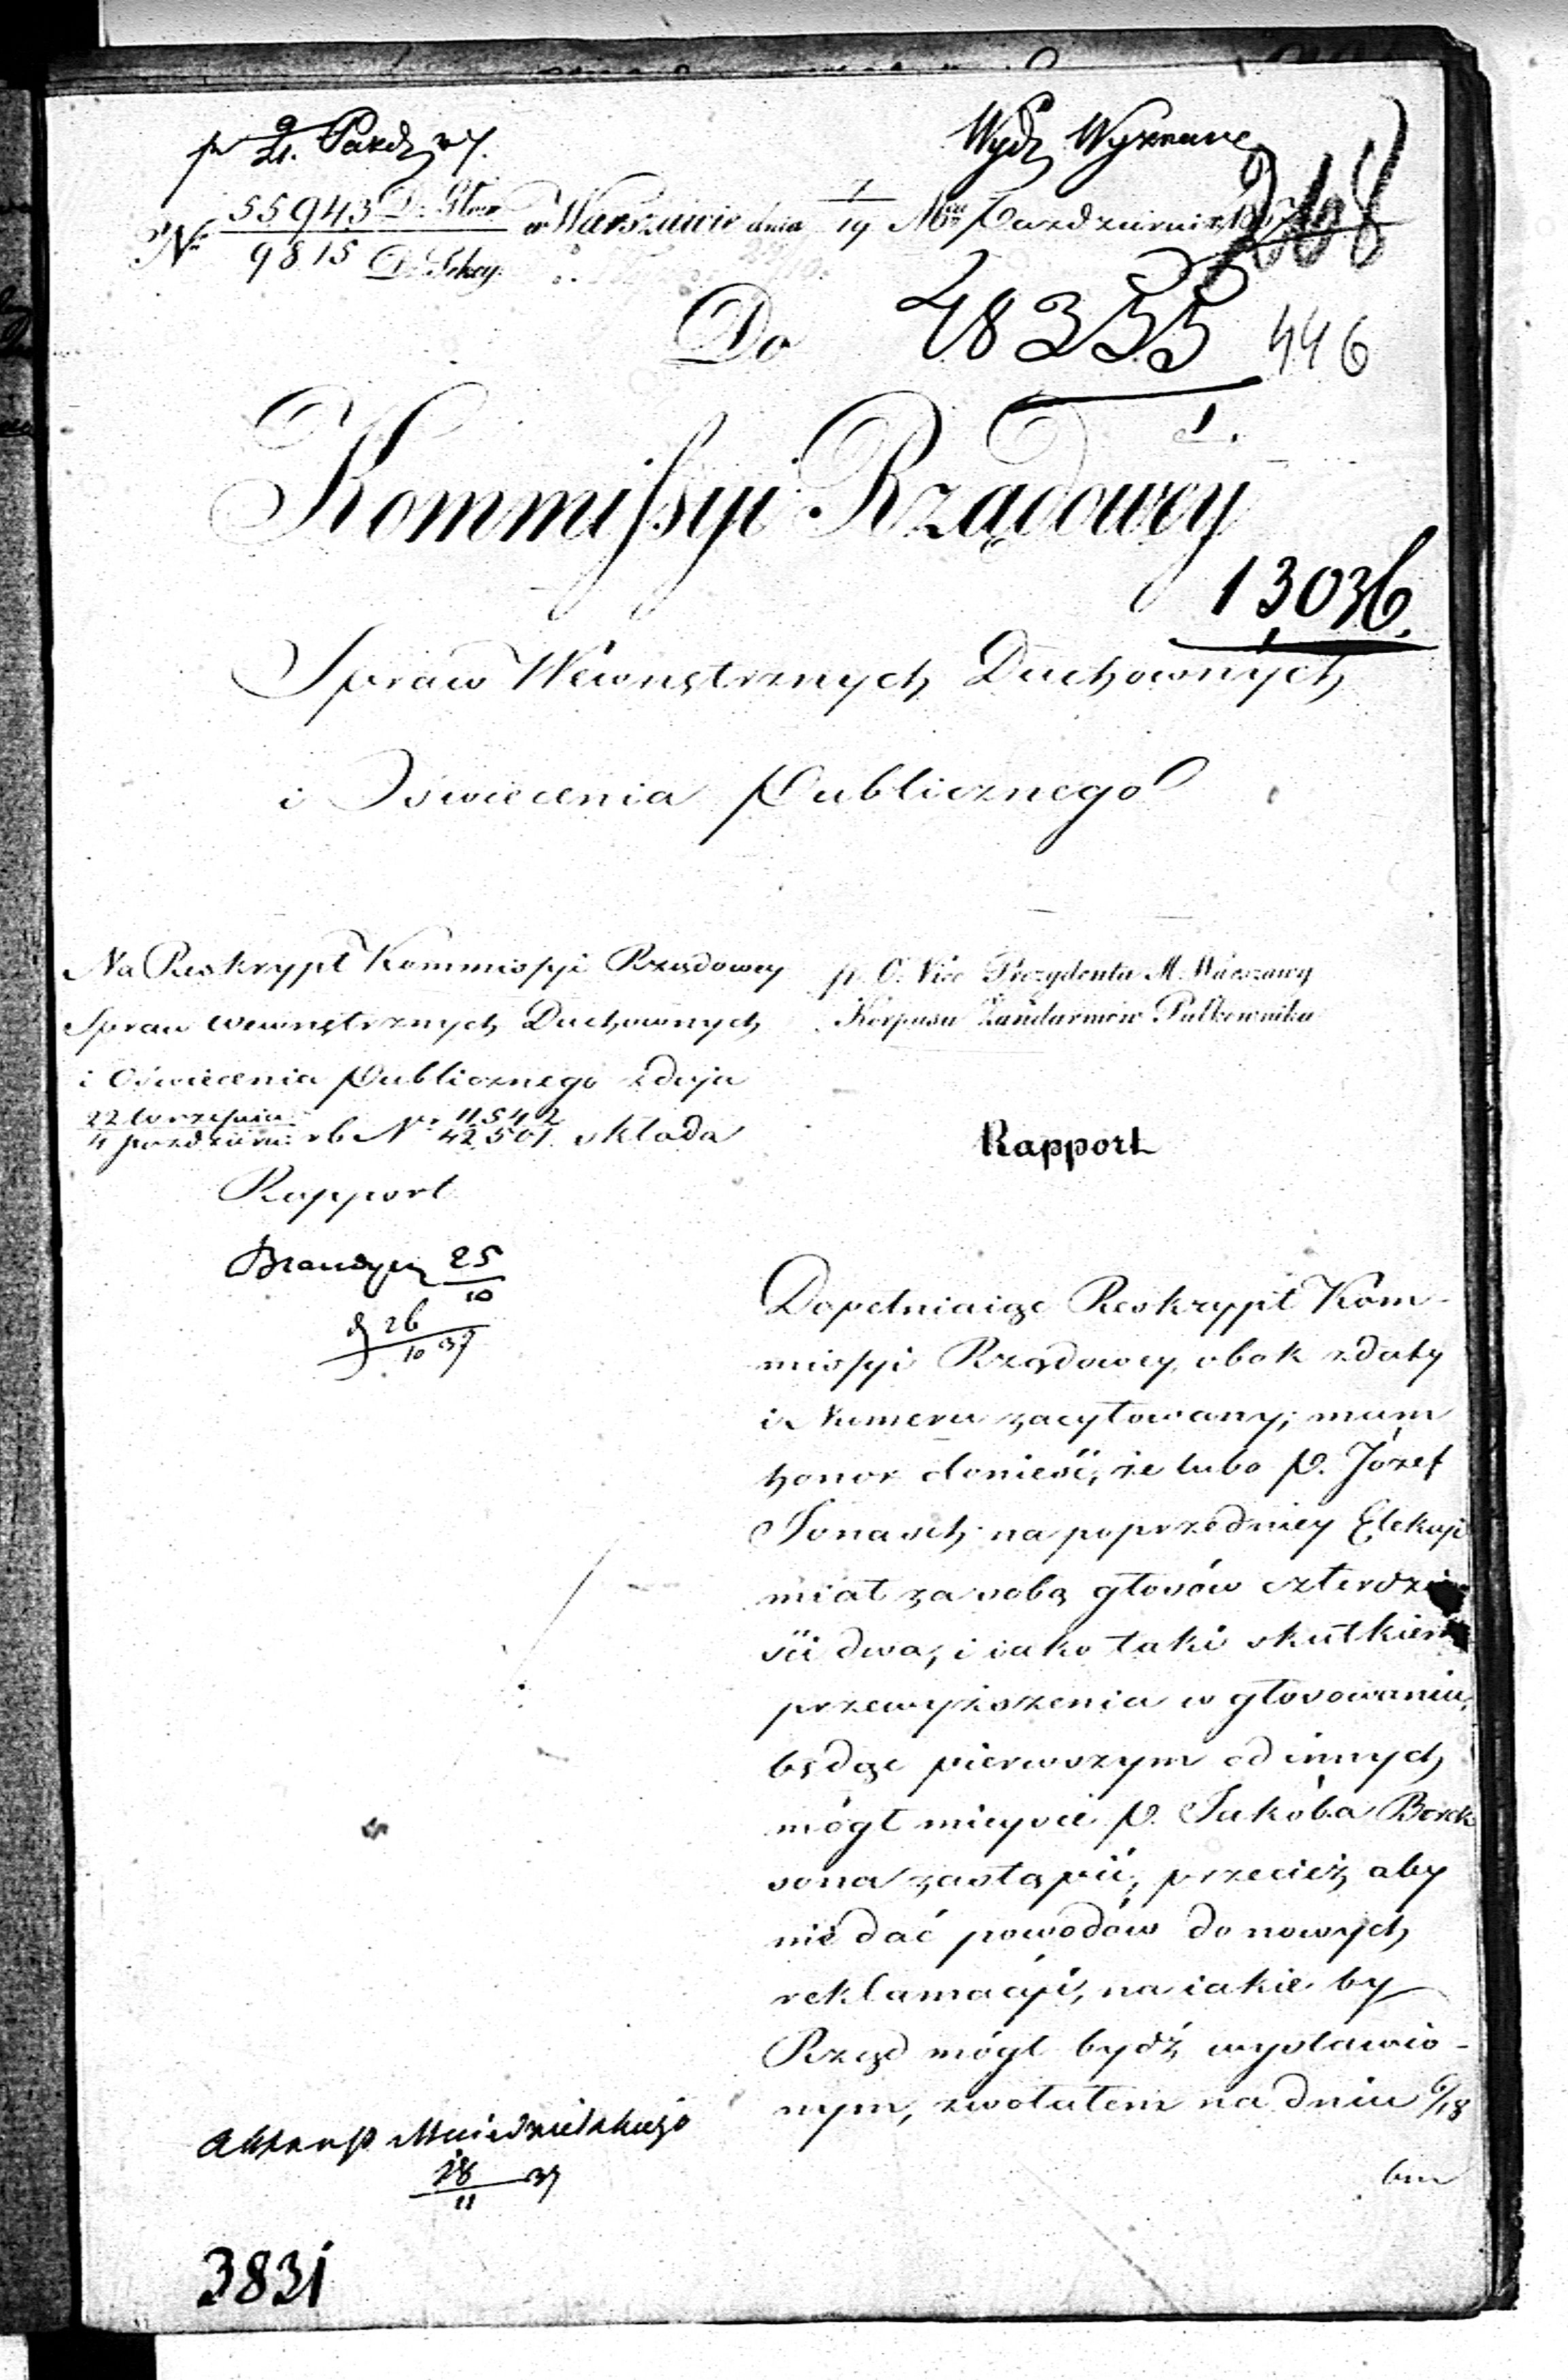 pr 9/21. Pazdz 37.
Wydz Wyznane
No 55943 D. Głow / 9815 D. Sekcy. w Warszawie dnia 7/19 Mca Pazdziernika
268
Do 48355 446
1.
Kommissyi Rządowey
13036.
Spraw Wewnętrznych Duchownych
i Oswiecenia Publicznego
Na Reskrypt Kommissyi Rządowey
Spraw Wewnętrznych Duchownych
i Oświecenia Publicznego z daja
22 Wrzesnia / 4 pazdziern: r b No 11542 / 42501. składa
Rapport
25/10
26/10 37
p. O. Vice Prezydenta M. Warszawy
Korpusu Żandarmów Pułkownika
Rapport
Dopełniaiąc Reskrypt Kom-
missyi Rządowey, obok z daty
i Numeru zacytowany; mam
honor donieść, że lubo P. Józef
Jonasch na poprzedniey Elekcyi
miał za sobą głosów czterdzie
ści dwa, i iako taki skutkiem
przewyższenia w głosowaniu,
będąc pierwszym od innych
mógł mieysce P. Jakóba Berek
sona zastąpić, przecież aby
nie dać powodów do nowych
reklamacyi, na iakie by
Rząd mógł bydź wystawio-
nym, zwołałem na dniu 6/18
bm
28/11 37
3831